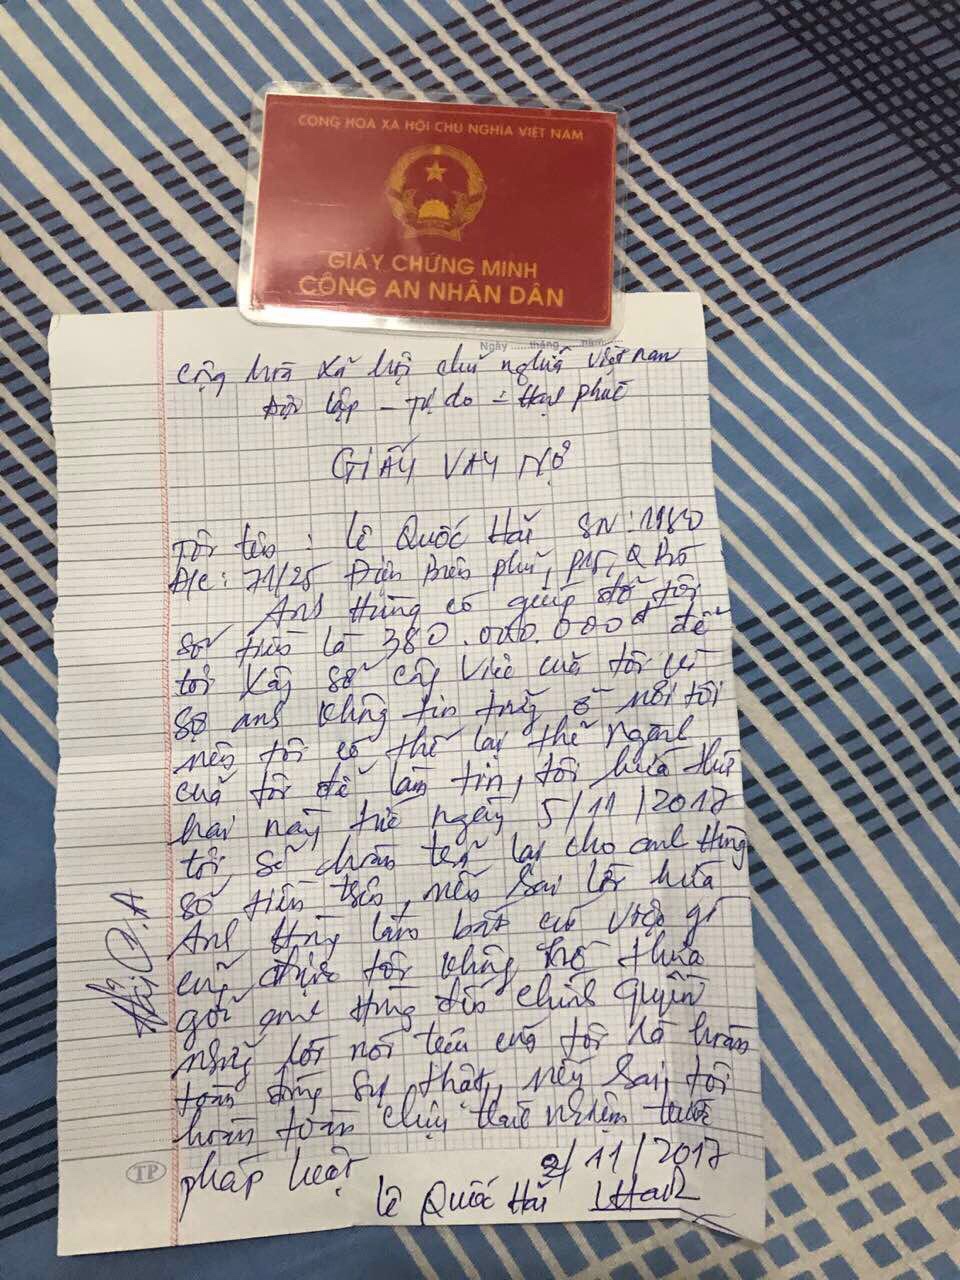 CỘNG HÒA XÃ HỘI CHỦ NGHĨA VIỆT NAM
GIẤY CHỨNG MINH
CÔNG AN NHÂN DÂN
Ngày ......tháng ......năm
Cộng hòa xã hội chủ nghĩa Việt nam
Độc lập - Tự do - Hạnh phúc
GIẤY VAY NỢ
Tôi tên : Lê Quốc Hải SN : 1980
Đ/c : 71/25 Điện Biên phủ, P15, Q B
Anh Hùng có giúp đỡ tôi
số tiền là 380.000.000đ để
tôi số công việc của tôi vì
sợ anh không tin tưởng ở nơi tôi
nên tôi có thế lại thẻ ngành
của tôi để làm tin, tôi hứa thứ
hai này tức ngày 5/11/2017
tôi sẽ hoàn trả lại cho anh Hùng
số tiền trên, nếu sai lời hứa
Anh Hùng làm bất cứ việc gì
cũng được tôi không thưa
gởi anh Hùng đến chính quyền
những lời nói trên của tôi là hoàn
toàn đúng sự thật, nếu sai tôi
hoàn toàn chịu trách nhiệm trước
pháp luật
2/11/2017
Lê Quốc Hải
TP